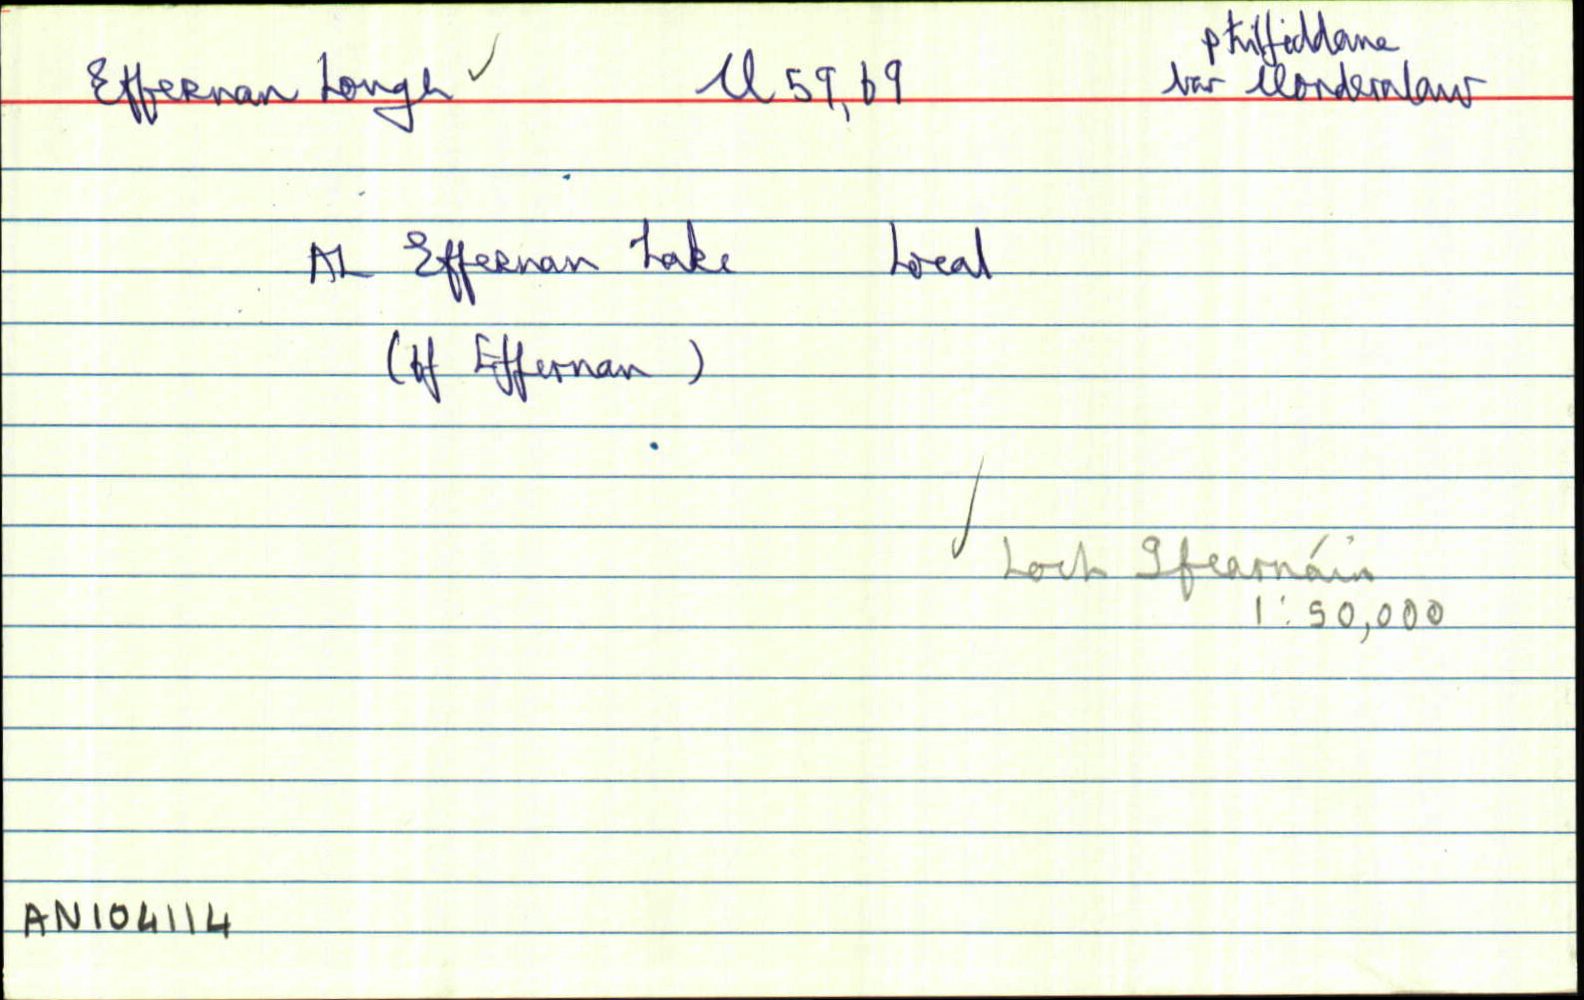 p Kilfiddane
Effernan Lough ✓ Cl 59, 69 bar Clonderalaw
AL Effernan Lake Local
(cf Effernan)
✓ Loch Ifearnáin
1:50,000
AN104114